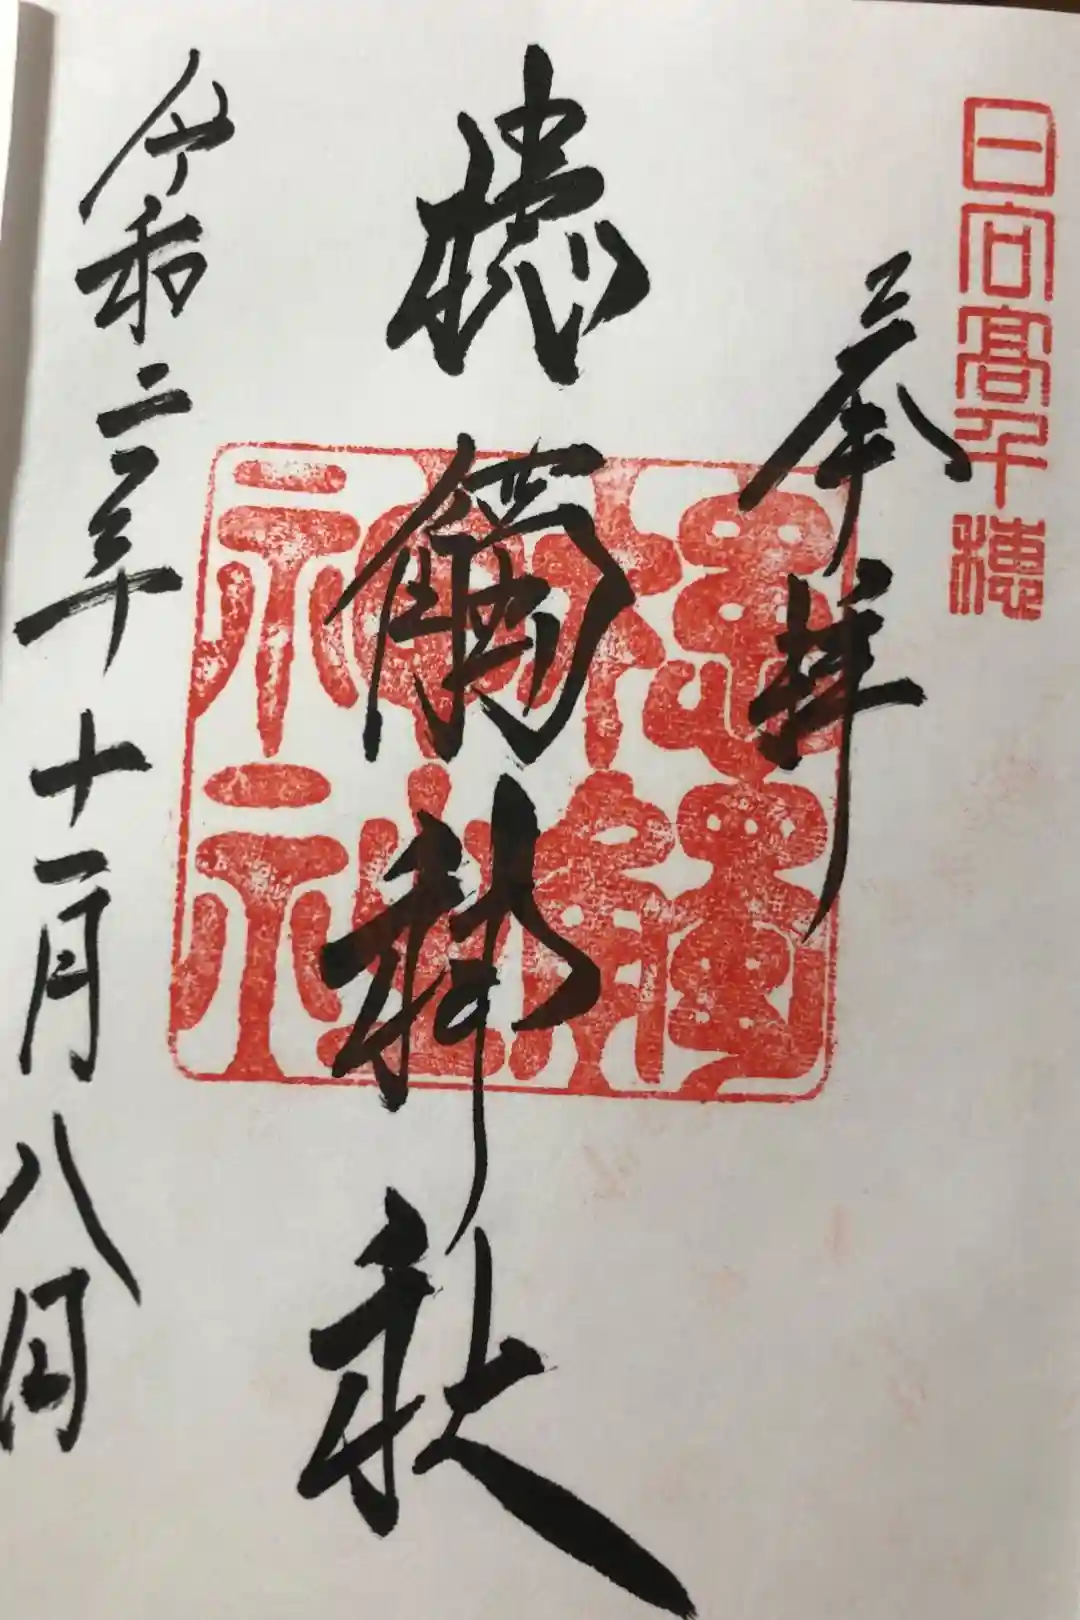 日向高千穂
奉拝
槵觸神社
槵觸神社
令和二年十一月八日